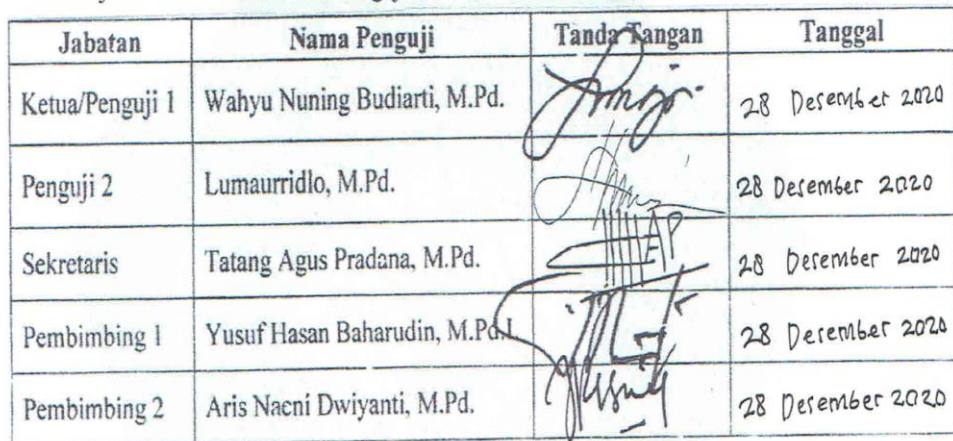 Jabatan Nama Penguji Tanda Tangan Tanggal
Ketua/Penguji 1 Wahyu Nuning Budiarti, M.Pd. 28 Desember 2020
Penguji 2 Lumaurridlo, M.Pd. 28 Desember 2020
Sekretaris Tatang Agus Pradana, M.Pd. 28 Desember 2020
Pembimbing 1 Yusuf Hasan Baharudin, M.Pd.I. 28 Desember 2020
Pembimbing 2 Aris Naeni Dwiyanti, M.Pd. 28 Desember 2020